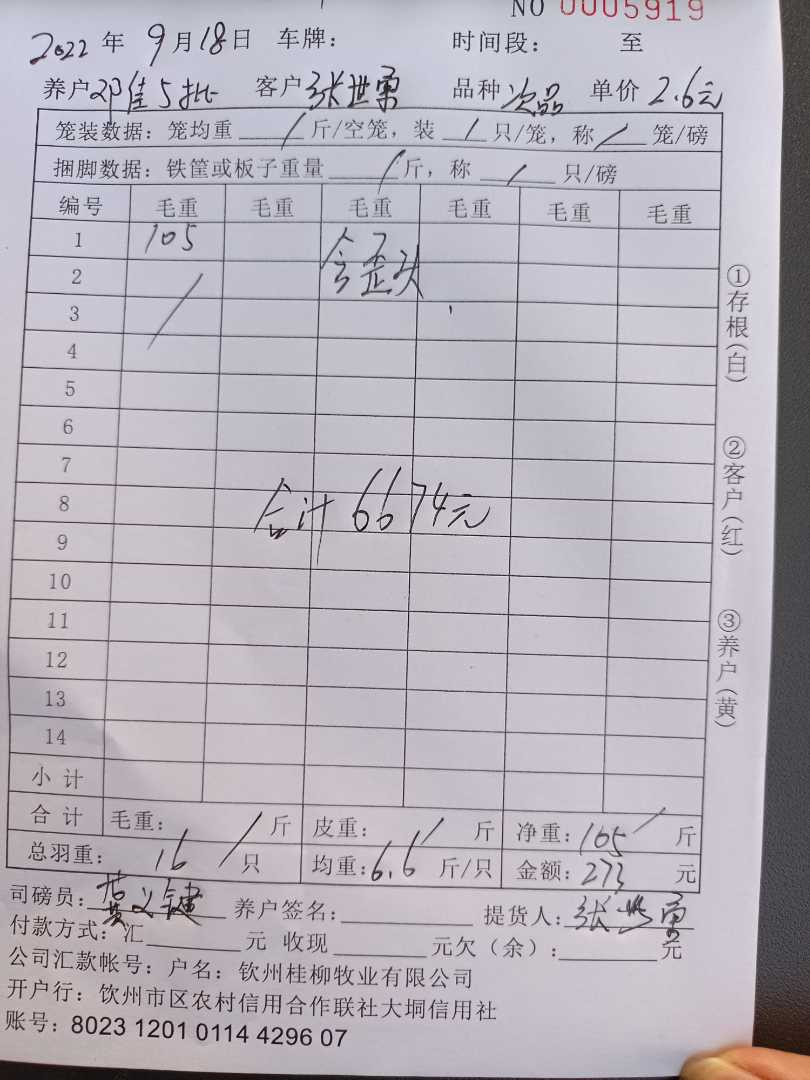 NO 0005919
2022年 9月18日 车牌： 时间段： 至
养户 邓佳5批 客户 张世勇 品种 次品 单价 2.6元
笼装数据：笼均重 / 斤/空笼，装 / 只/笼，称 / 笼/磅
捆脚数据：铁筐或板子重量 / 斤，称 / 只/磅
编号 毛重 毛重 毛重 毛重 毛重 毛重
1 105 含歪头
2
3
4
5
6
7
8 合计6674元
9
10
11
12
13
14
小计
合计 毛重： / 斤 皮重： / 斤 净重：105 / 斤
总羽重： 16 / 只 均重：6.6 斤/只 金额：273 元
司磅员：黄义键 养户签名： 提货人：张世勇
付款方式：汇 元 收现 元欠（余）： 元
公司汇款帐号：户名：钦州桂柳牧业有限公司
开户行：钦州市区农村信用合作联社大垌信用社
账号：8023 1201 0114 4296 07
①存根（白）
②客户（红）
③养户（黄）